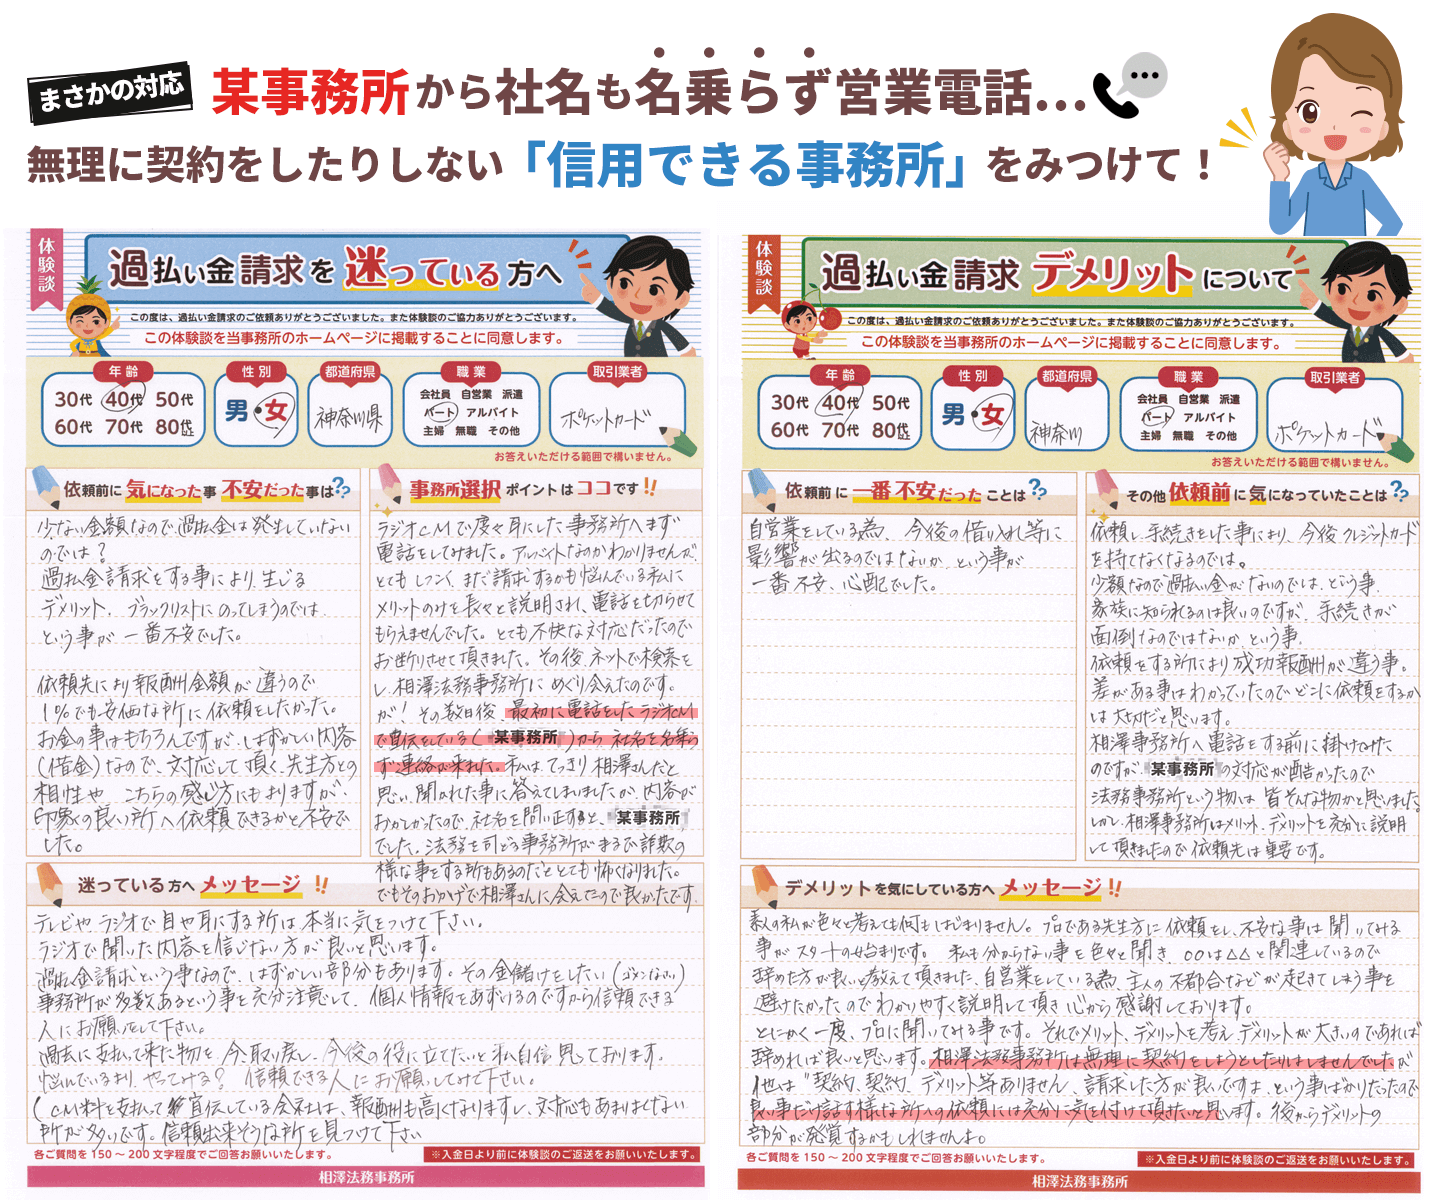 まさかの対応
某事務所から社名も名乗らず営業電話…
無理に契約をしたりしない「信用できる事務所」をみつけて！
体験談
過払い金請求を迷っている方へ
この度は、過払い金請求のご依頼ありがとうございました。また体験談のご協力ありがとうございます。
この体験談を当事務所のホームページに掲載することに同意します。
年齢
30代 40代 50代
60代 70代 80代以上
性別
男・女
都道府県
神奈川県
職業
会社員 自営業 派遣
パート アルバイト
主婦 無職 その他
取引業者
ポケットカード
お答えいただける範囲で構いません。
依頼前に気になった事 不安だった事は??
少ない金額なので過払金は発生していない
のでは？
過払金請求をする事により生じる
デメリット、ブラックリストにのってしまうのでは
という事が一番不安でした。
依頼先により報酬金額が違うので
1%でも安価な所に依頼をしたかった。
お金の事はもちろんですが、はずかしい内容
(借金)なので、対応して頂く先生方との
相性や こちらの感じ方にもよりますが、
印象の良い所へ依頼できるかと不安で
した。
事務所選択ポイントはココです!!
ラジオCMで度々耳にした事務所へまず
電話をしてみました。アルバイトなのかわかりませんが、
とてもしつこく、まだ請求するかも悩んでいる私に
メリットのみを長々と説明され、電話を切らせて
もらえませんでした。とても不快な対応だったので
お断りさせて頂きました。その後、ネットで検索を
し、相澤法務事務所にめぐり会えたのです。
が！その数日後、最初に電話をしたラジオCM
で宣伝をしている(某事務所)から社名を名乗ら
ず連絡が来ました。私は、てっきり相澤さんだと
思い、聞かれた事に答えてしまいましたが、内容が
おかしかったので、社名を問い正すると、某事務所
でした。法務を司どる事務所がまるで詐欺の
様な事をする所もあるのだととても怖くなりました。
でもそのおかげで相澤さんに会えたので良かったです。
迷っている方へメッセージ!!
テレビやラジオで目や耳にする所は、本当に気をつけて下さい。
ラジオで聞いた内容を信じない方が良いと思います。
過払金請求という事なので、はずかしい部分もあります。その金儲けをしたい(ごめんなさい)
事務所が多数あるという事を充分注意して、個人情報をあずけるのですから信頼できる
人にお願いして下さい。
過去に支払って来た物を、今、取り戻し、今後の役に立てたいと私自信思っております。
悩んでいるより、やってみる？ 信頼できる人にお願いしてみて下さい。
(CM料を支払って宣伝している会社は、報酬も高くなりますし、対応もあまりよくない
所が多いです。信頼出来そうな所を見つけて下さい
各ご質問を150～200文字程度でご回答お願いいたします。
※入金日より前に体験談のご返送をお願いいたします。
相澤法務事務所
体験談
過払い金請求デメリットについて
この度は、過払い金請求のご依頼ありがとうございました。また体験談のご協力ありがとうございます。
この体験談を当事務所のホームページに掲載することに同意します。
年齢
30代 40代 50代
60代 70代 80代以上
性別
男・女
都道府県
神奈川
職業
会社員 自営業 派遣
パート アルバイト
主婦 無職 その他
取引業者
ポケットカード
お答えいただける範囲で構いません。
依頼前に一番不安だったことは??
自営業をしている為、今後の借り入れ等に
影響が出るのではないか、という事が
一番不安、心配でした。
その他依頼前に気になっていたことは??
依頼し、手続きをした事により、今後クレジットカード
を持てなくなるのでは。
少額なので過払い金がないのでは、という事。
家族に知られるのは良いのですが、手続きが
面倒なのではないか、という事。
依頼をする所により成功報酬が違う事。
差がある事はわかっていたのでどこに依頼をするか
は大切だと思います。
相澤事務所へ電話をする前に掛けてみた
のですが、某事務所の対応が酷かったので
法務事務所という物は皆そんな物かと思いました。
しかし、相澤事務所はメリット、デメリットを充分に説明
して頂きましたので依頼先は重要です。
デメリットを気にしている方へメッセージ!!
素人の私が色々と考えても何もはじまりません。プロである先生方に依頼をし、不安な事は聞いてみる
事がスタートの始まりです。私も分からない事を色々と聞き、○○は△△と関連しているので
辞めた方が良いと教えて頂きました。自営業をしている為、主人の不都合などが起きてしまう事を
避けたかったのでわかりやすく説明して頂き心から感謝しております。
とにかく一度、プロに聞いてみる事です。それでメリット、デメリットを考え、デメリットが大きいのであれば
辞めれば良いと思います。相澤法務事務所は無理に契約をしようとしたりはしませんでしたが
他は"契約、契約、デメリット等ありません、請求した方が良いですよ、という事ばかりだったので
良い事だけ話す様な所への依頼には充分に気を付けて頂きたいと思います。後からデメリットの
部分が発覚するかもしれませんよ。
各ご質問を150～200文字程度でご回答お願いいたします。
※入金日より前に体験談のご返送をお願いいたします。
相澤法務事務所